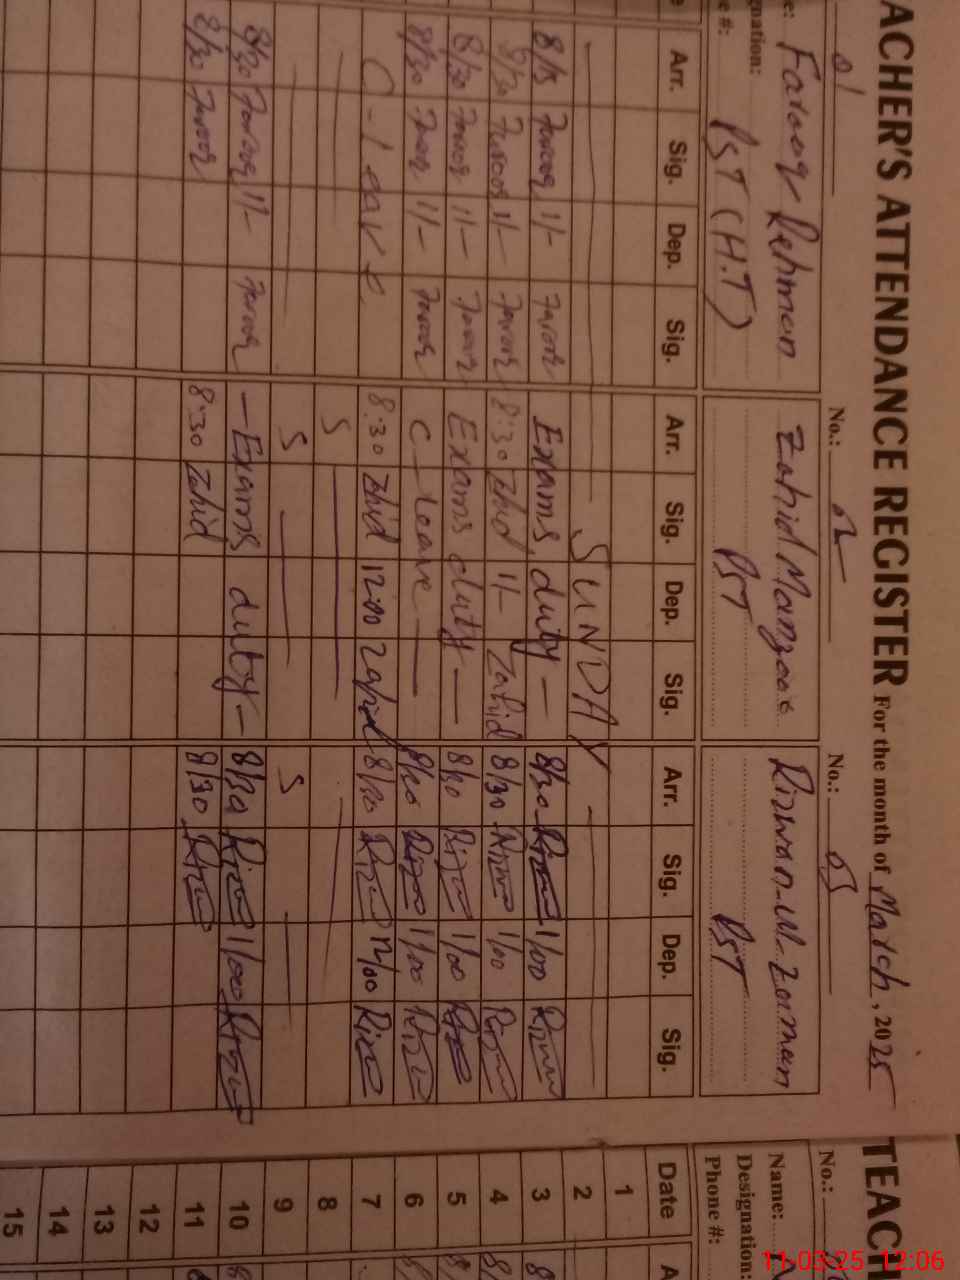 TEACHER'S ATTENDANCE REGISTER For the month of March, 2025
01 No.: 02 No.: 03
Farooq Rehman Zahid Manzoor Rizwan-ul-Zaman
PST (H.T) PST PST
Arr. Sig. Dep. Sig. Arr. Sig. Dep. Sig. Arr. Sig. Dep. Sig.
SUNDAY
8/15 Farooq 1/- Farooq Exams duty 8/30 Rizwan 1/00 Rizwan
8/30 Farooq 1/- Farooq 8:30 Zahid 1/- Zahid 8/30 Rizwan 1/00 Rizwan
8/30 Farooq 1/- Farooq Exams duty 8/30 Rizwan 1/00 Rizwan
8/30 Farooq 1/- Farooq C leave 8/30 Rizwan 1/00 Rizwan
C-leave 8:30 Zahid 12:00 Zahid 8/30 Rizwan 12/00 Rizwan
S
S S
8/30 Farooq 1/- Farooq Exams duty 8/30 Rizwan 1/00 Rizwan
8/30 Farooq 8:30 Zahid 8/30 Rizwan
TEACH
No.:
Name:
Designation:
Phone #:
Date A
1
2
3 8
4 8/
5 8
6
7
8
9
10 8
11
12
13
14
15
11-03-25 12:06